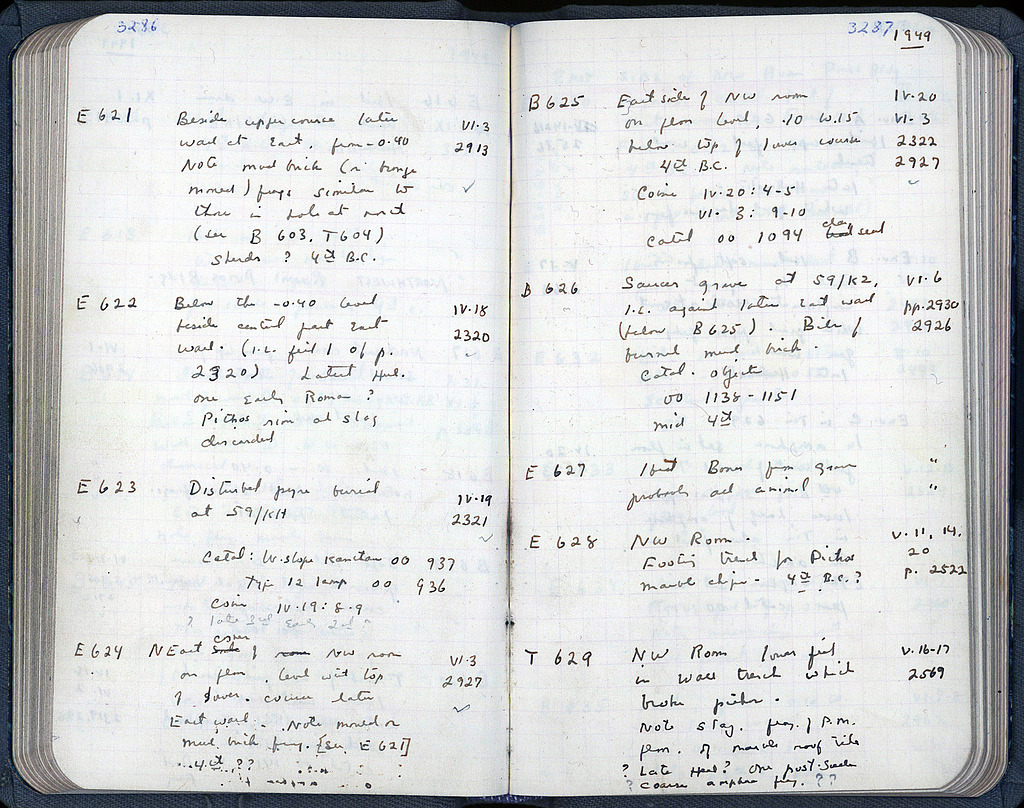 3286
E 621 Beside upper course later VI·3
wall at East, from -0·40 2913
Note mud brick (or
moved) frags similar to ✓
those in hole at
(see B 603, T 604)
Sherds ? 4th B.C.
E 622 Below the -0·40 level IV·18
beside central part East 2320
wall. (i.e. fill 1 of p.
2320) Latest Hel.
one Early Roman ?
Pithos rim and slag
discarded
E 623 Disturbed pyre burial IV·19
at 59/KH 2321
Catal: W. slope Kantharos OO 937
Type 12 lamp OO 936
coin IV·19: 8-9
? late 3rd Early 2nd
corner
E 624 NEast side of room NW room VI·3
on floor, level with top 2927
of lower course later
East wall. Note moved or ✓
mud brick frag. [see E 621]
4th ??
3287 1949
B 625 East side of NW room IV·20
on floor level, ·10 to ·15 VI·3
below top of lower course 2322
4th B.C. 2927
Coins IV·20: 4-5
VI·3: 9-10
Catal OO 1094 clay seal
B 626 Saucer grave at 59/K2, VI·6
i.e. against later East wall pp. 2930
(below B 625). Bits of 2926
burned mud brick.
Catal. objects
OO 1138-1151
mid 4th
E 627 Ibid Bones from grave "
probably all animal "
E 628 NW Room. V·11, 14,
Footing trench for Pithos 20
marble chips - 4th B.C.? p. 2522
T 629 NW Room lower fill V·16-17
in wall trench which 2569
broke pithos.
Note slag, frag. of P.M.
from. of marble roof tile
? Late Hel? One
? coarse amphora frag. ??